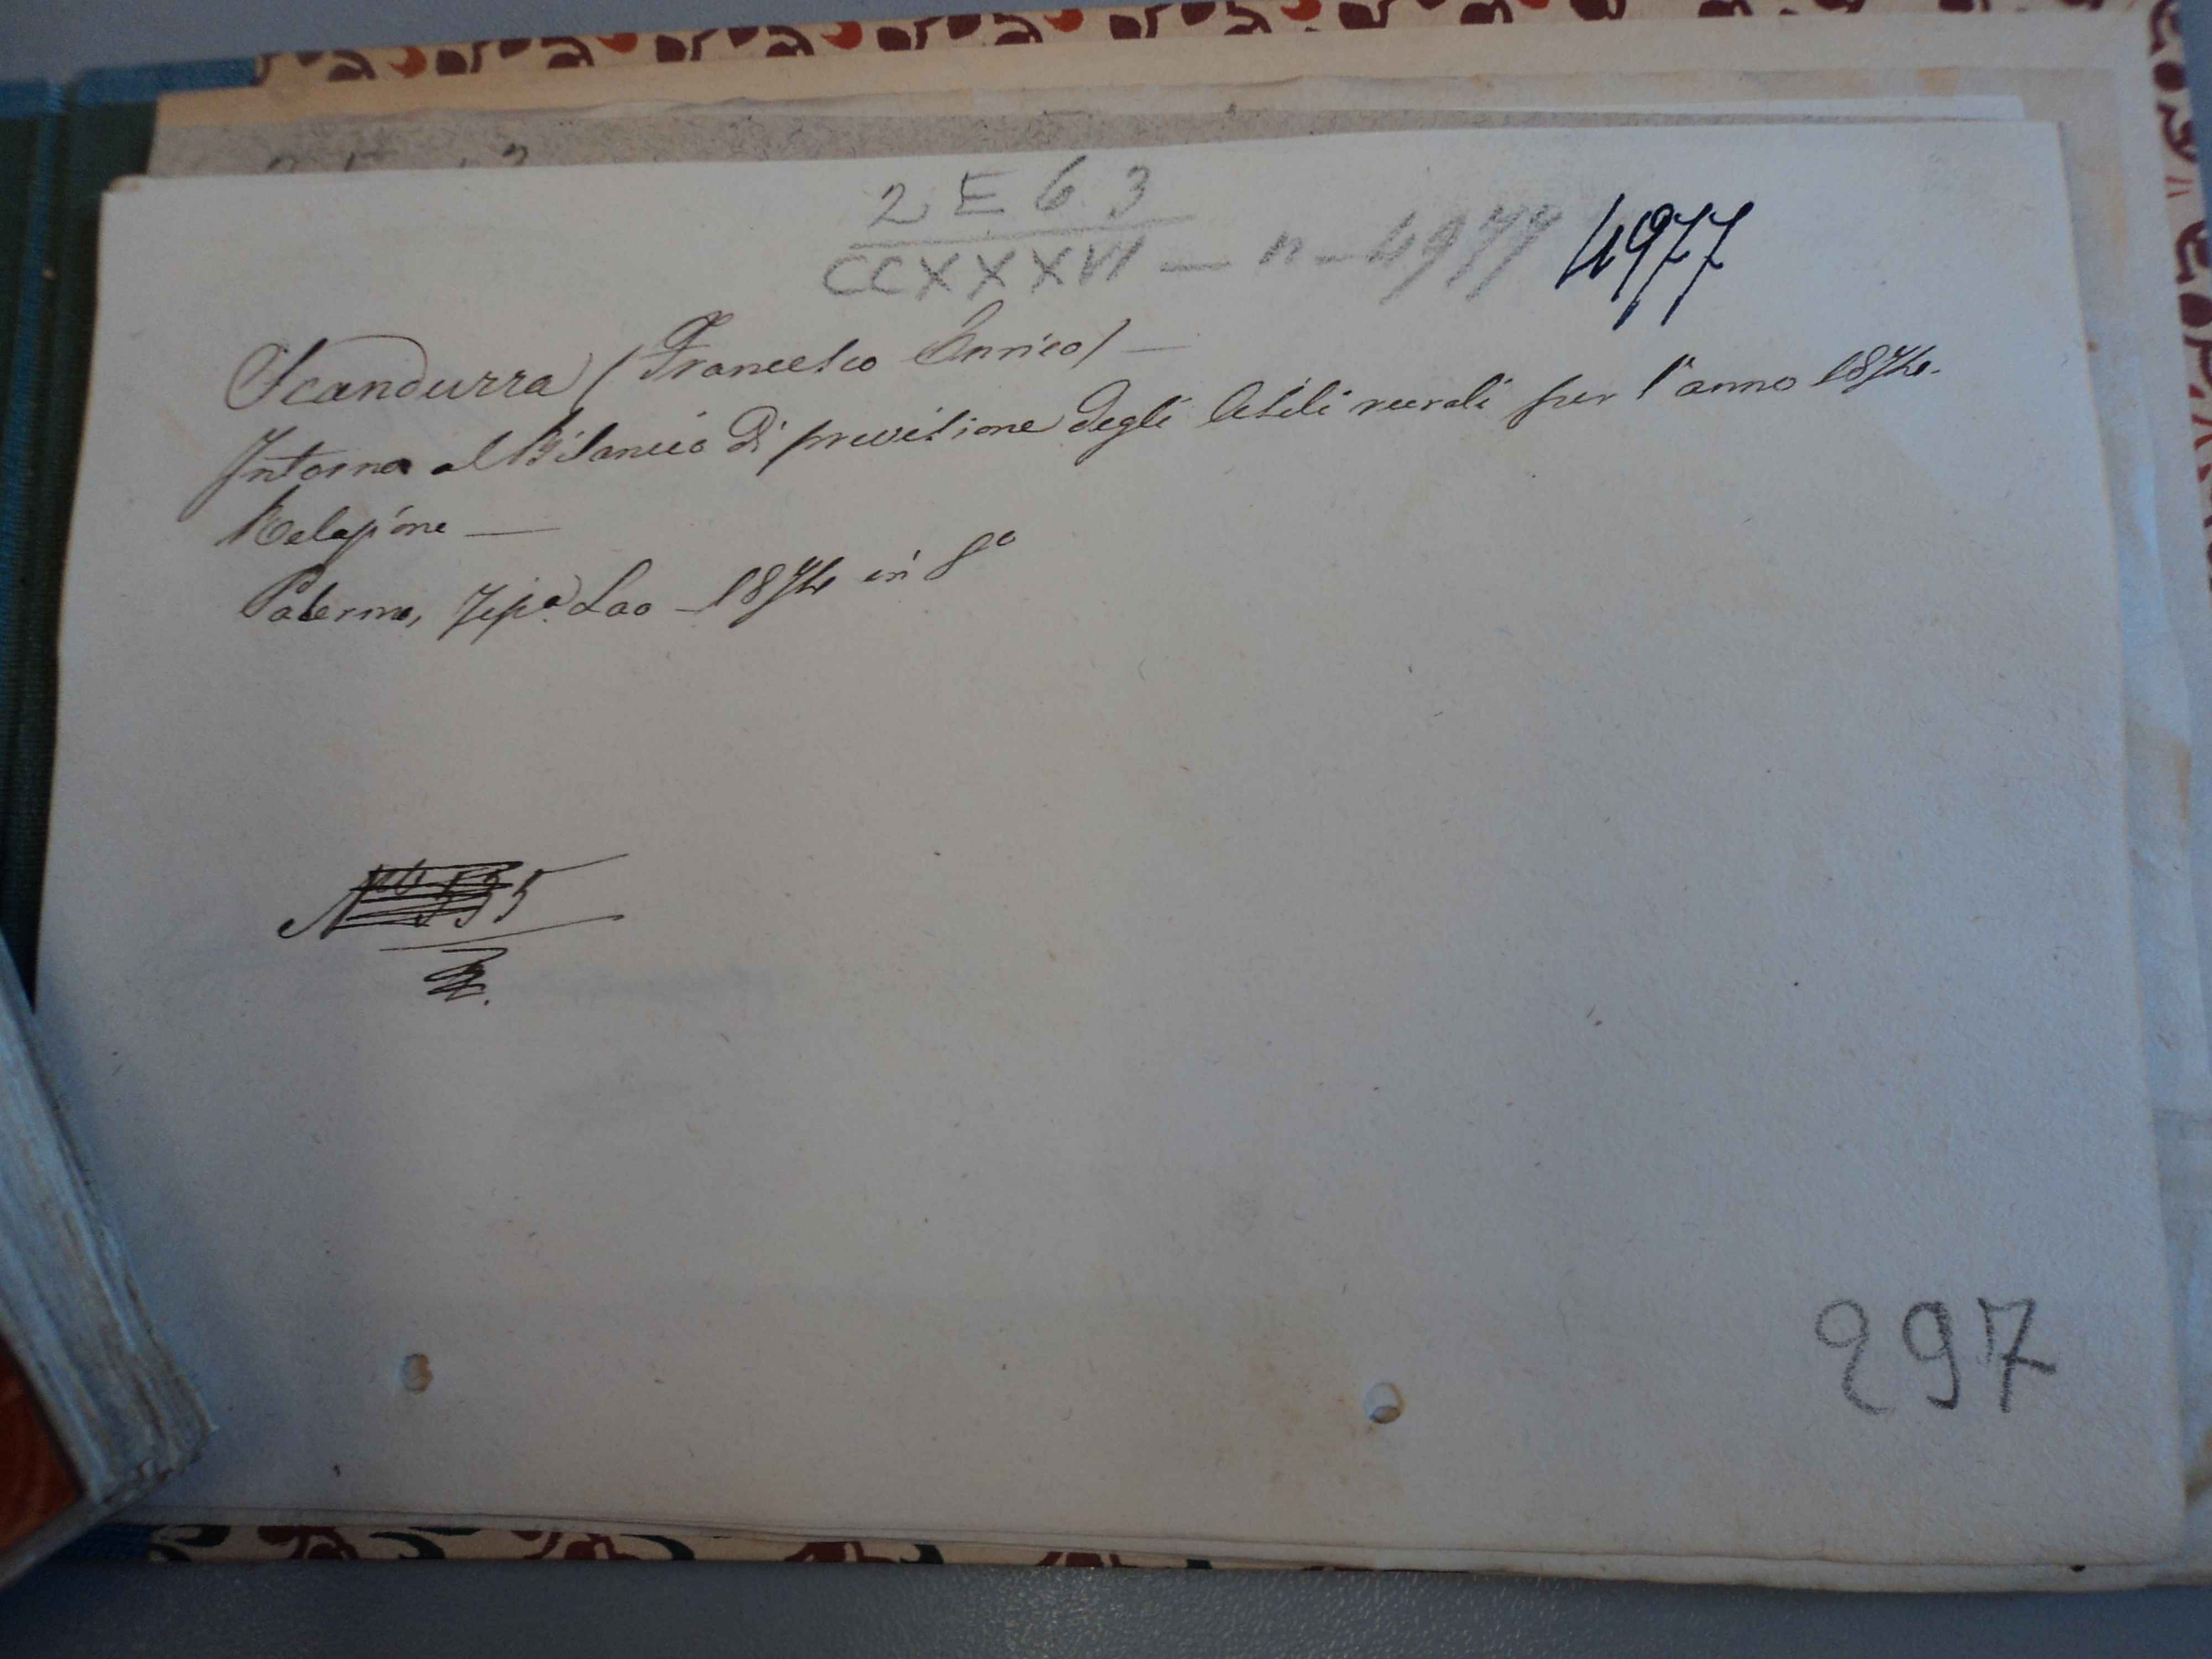 2 E 63
CCXXXVI — n - 4977 4977
Scandurra (Francesco Enrico) —
Intorno al Bilancio di previsione degli Asili rurali per l'anno 1874.
Relazione —
Palermo, Tip.ª Lao - 1874 in 8º
Nº 535
297